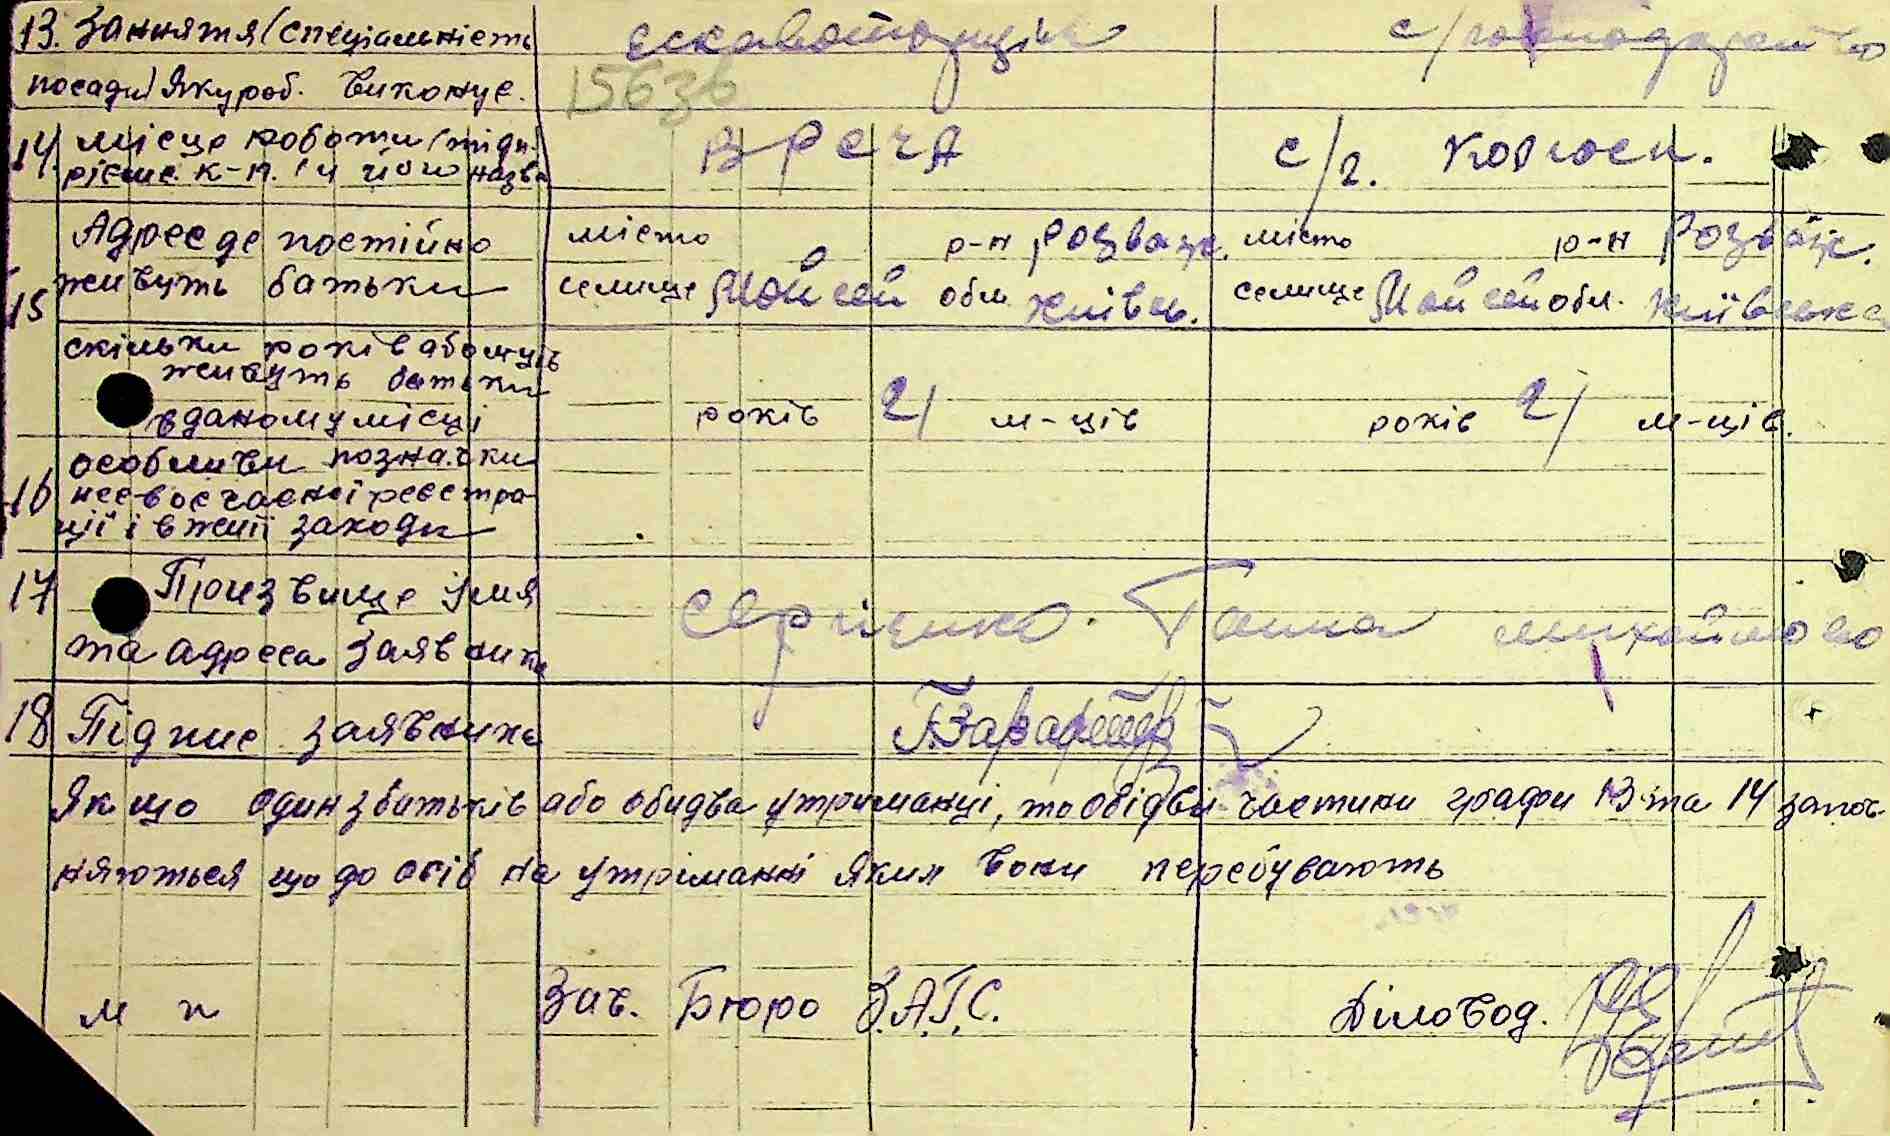 13. Заняття (спеціальність
посади) Яку роб. виконує.
1563в
14 місце роботи (підп-
рієме к-п. і и його назва
Вреча с/г. Колгосп.
15 Адрес де постійно
живуть батьки
місто р-н Розваж. місто р-н Розваж.
селище обл. Київсь. селище обл. Київська
скільки років або м-ців
живуть батьки
в даному місці
років 21 м-ців років 21 м-ців.
16 особливи позначки
несвоєчасної реєстра-
ції і вжиті заходи
17 Призвище імя
та адреса заявника
Сергієнко. Ганна михайлово
18 Підпис заявника
Якщо один з батьків або обидва утриманці, то обідві частини графи 13 та 14 запов-
няються що до осіб на утріманні яких вони перебувають
м п Зав. Бюро З.А.Г.С. Діловод.